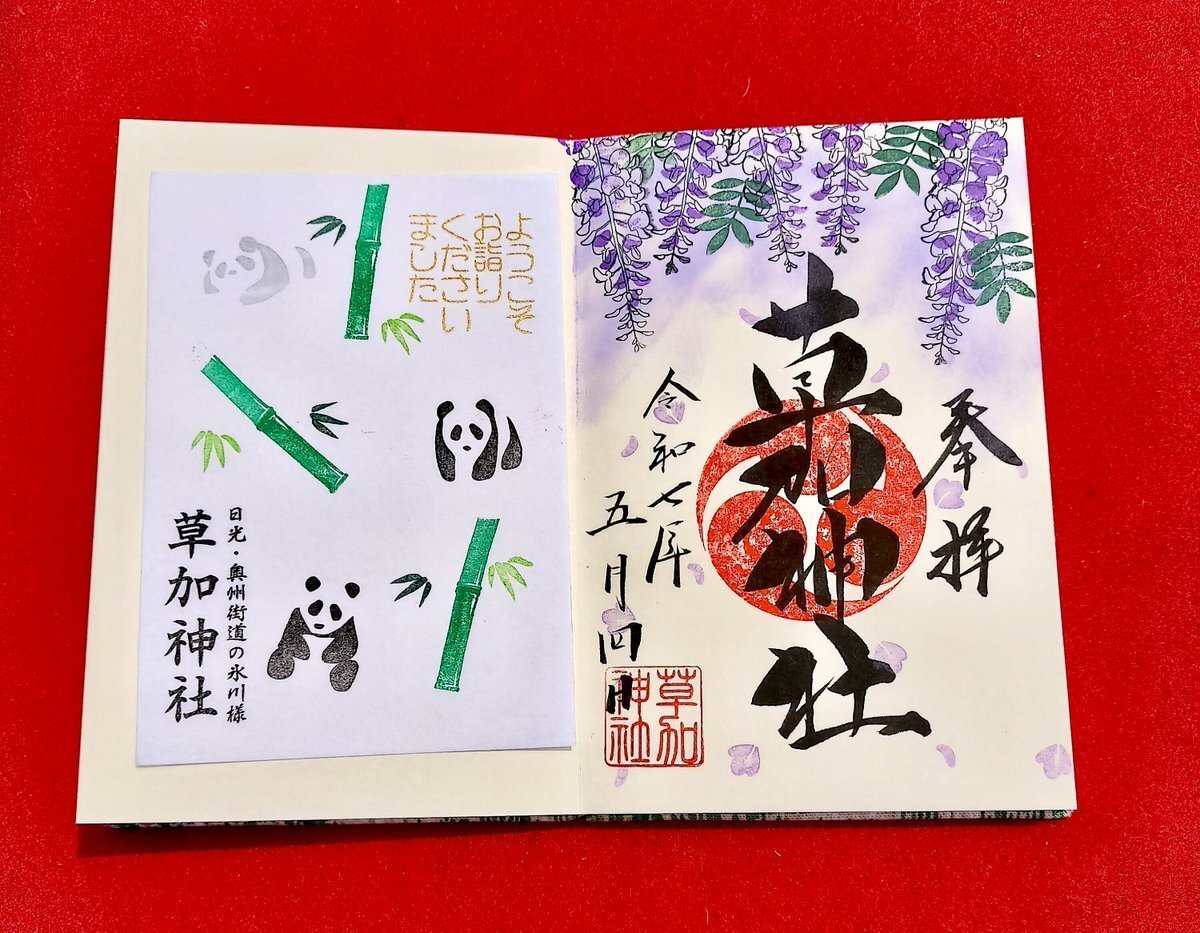 奉拝
草加神社
令和七年
五月四日
草加
神社
ようこそ
お詣り
ください
ました
日光・奥州街道の氷川様
草加神社